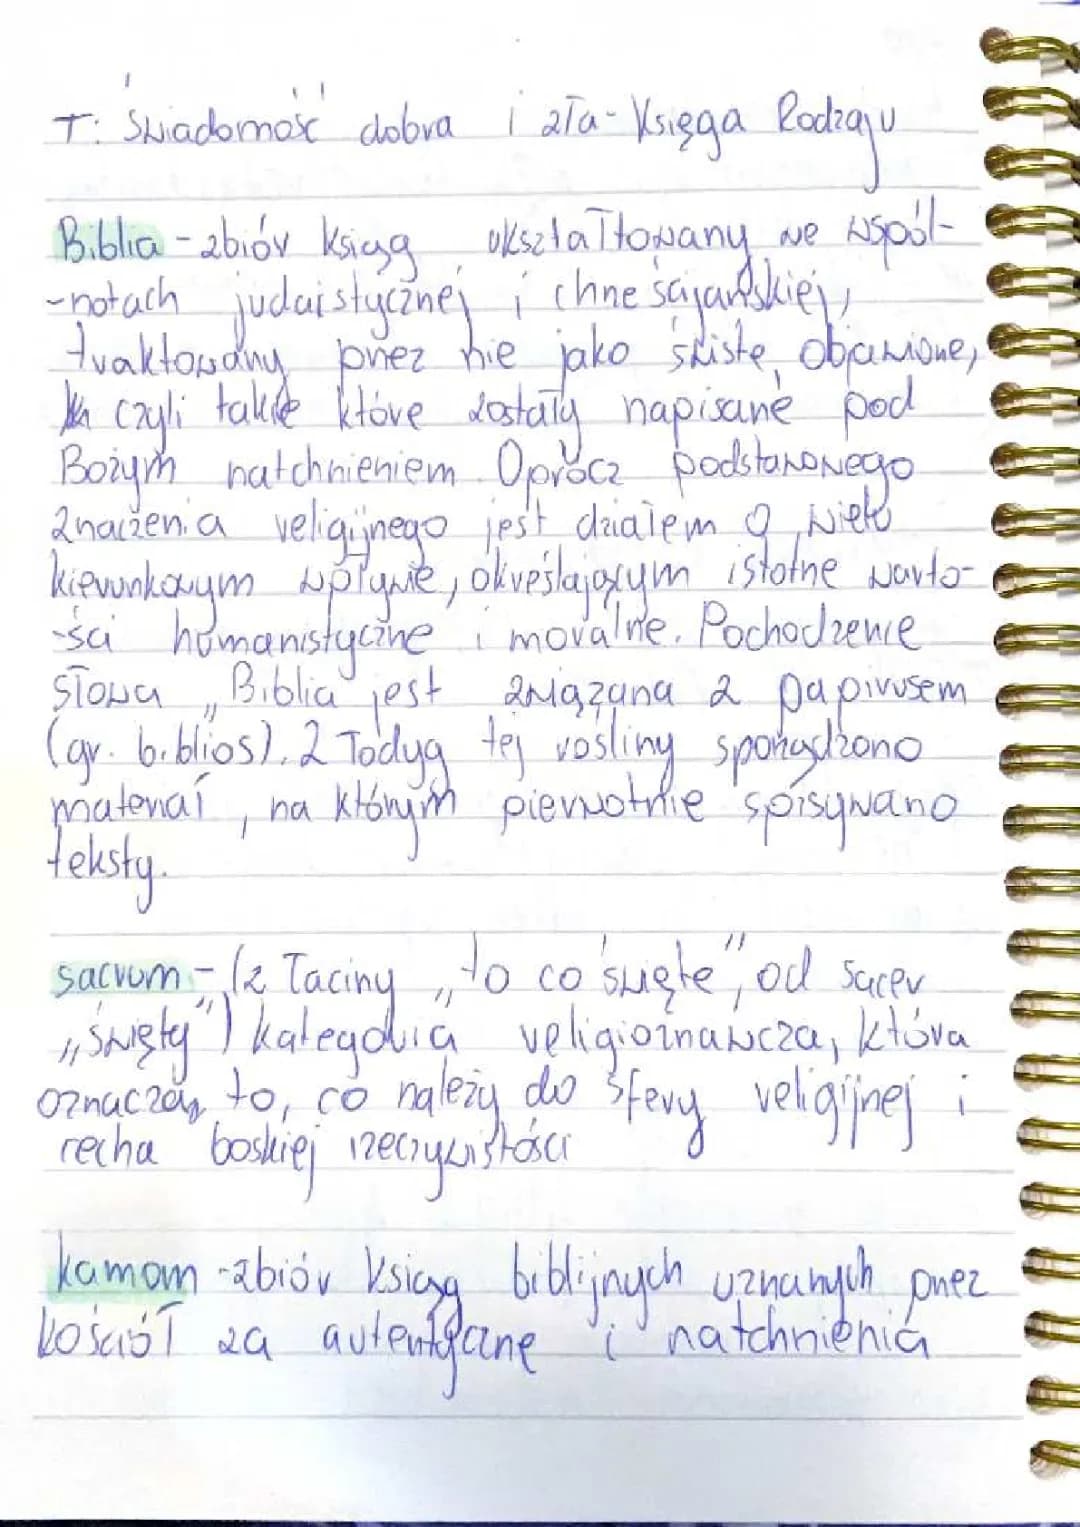 T: Świadomość dobra i zła - Księga Rodzaju
Biblia - zbiór Ksiąg ukształtowany we wspól-
-notach judaistycznej i chrześcijańskiej,
traktowany przez nie jako święte, objawione,
czyli takie które zostały napisane pod
Bożym natchnieniem. Oprócz podstawowego
znaczenia religijnego jest działem o wielo
kierunkowym wpływie, określającym istotne warto-
-ści humanistyczne i moralne. Pochodzenie
słowa „Biblia" jest związana z papirusem
(gr. biblios). Z łodyg tej rośliny sporządzono
materiał, na którym pierwotnie spisywano
teksty.
sacrum - (z łaciny „to co święte", od sacer
„święty") kategoria religioznawcza, która
oznacza to, co należy do sfery religijnej i
recha boskiej rzeczywistości
kamom - zbiór Ksiąg biblijnych uznanych przez
kościół za autentyczne i natchnienia